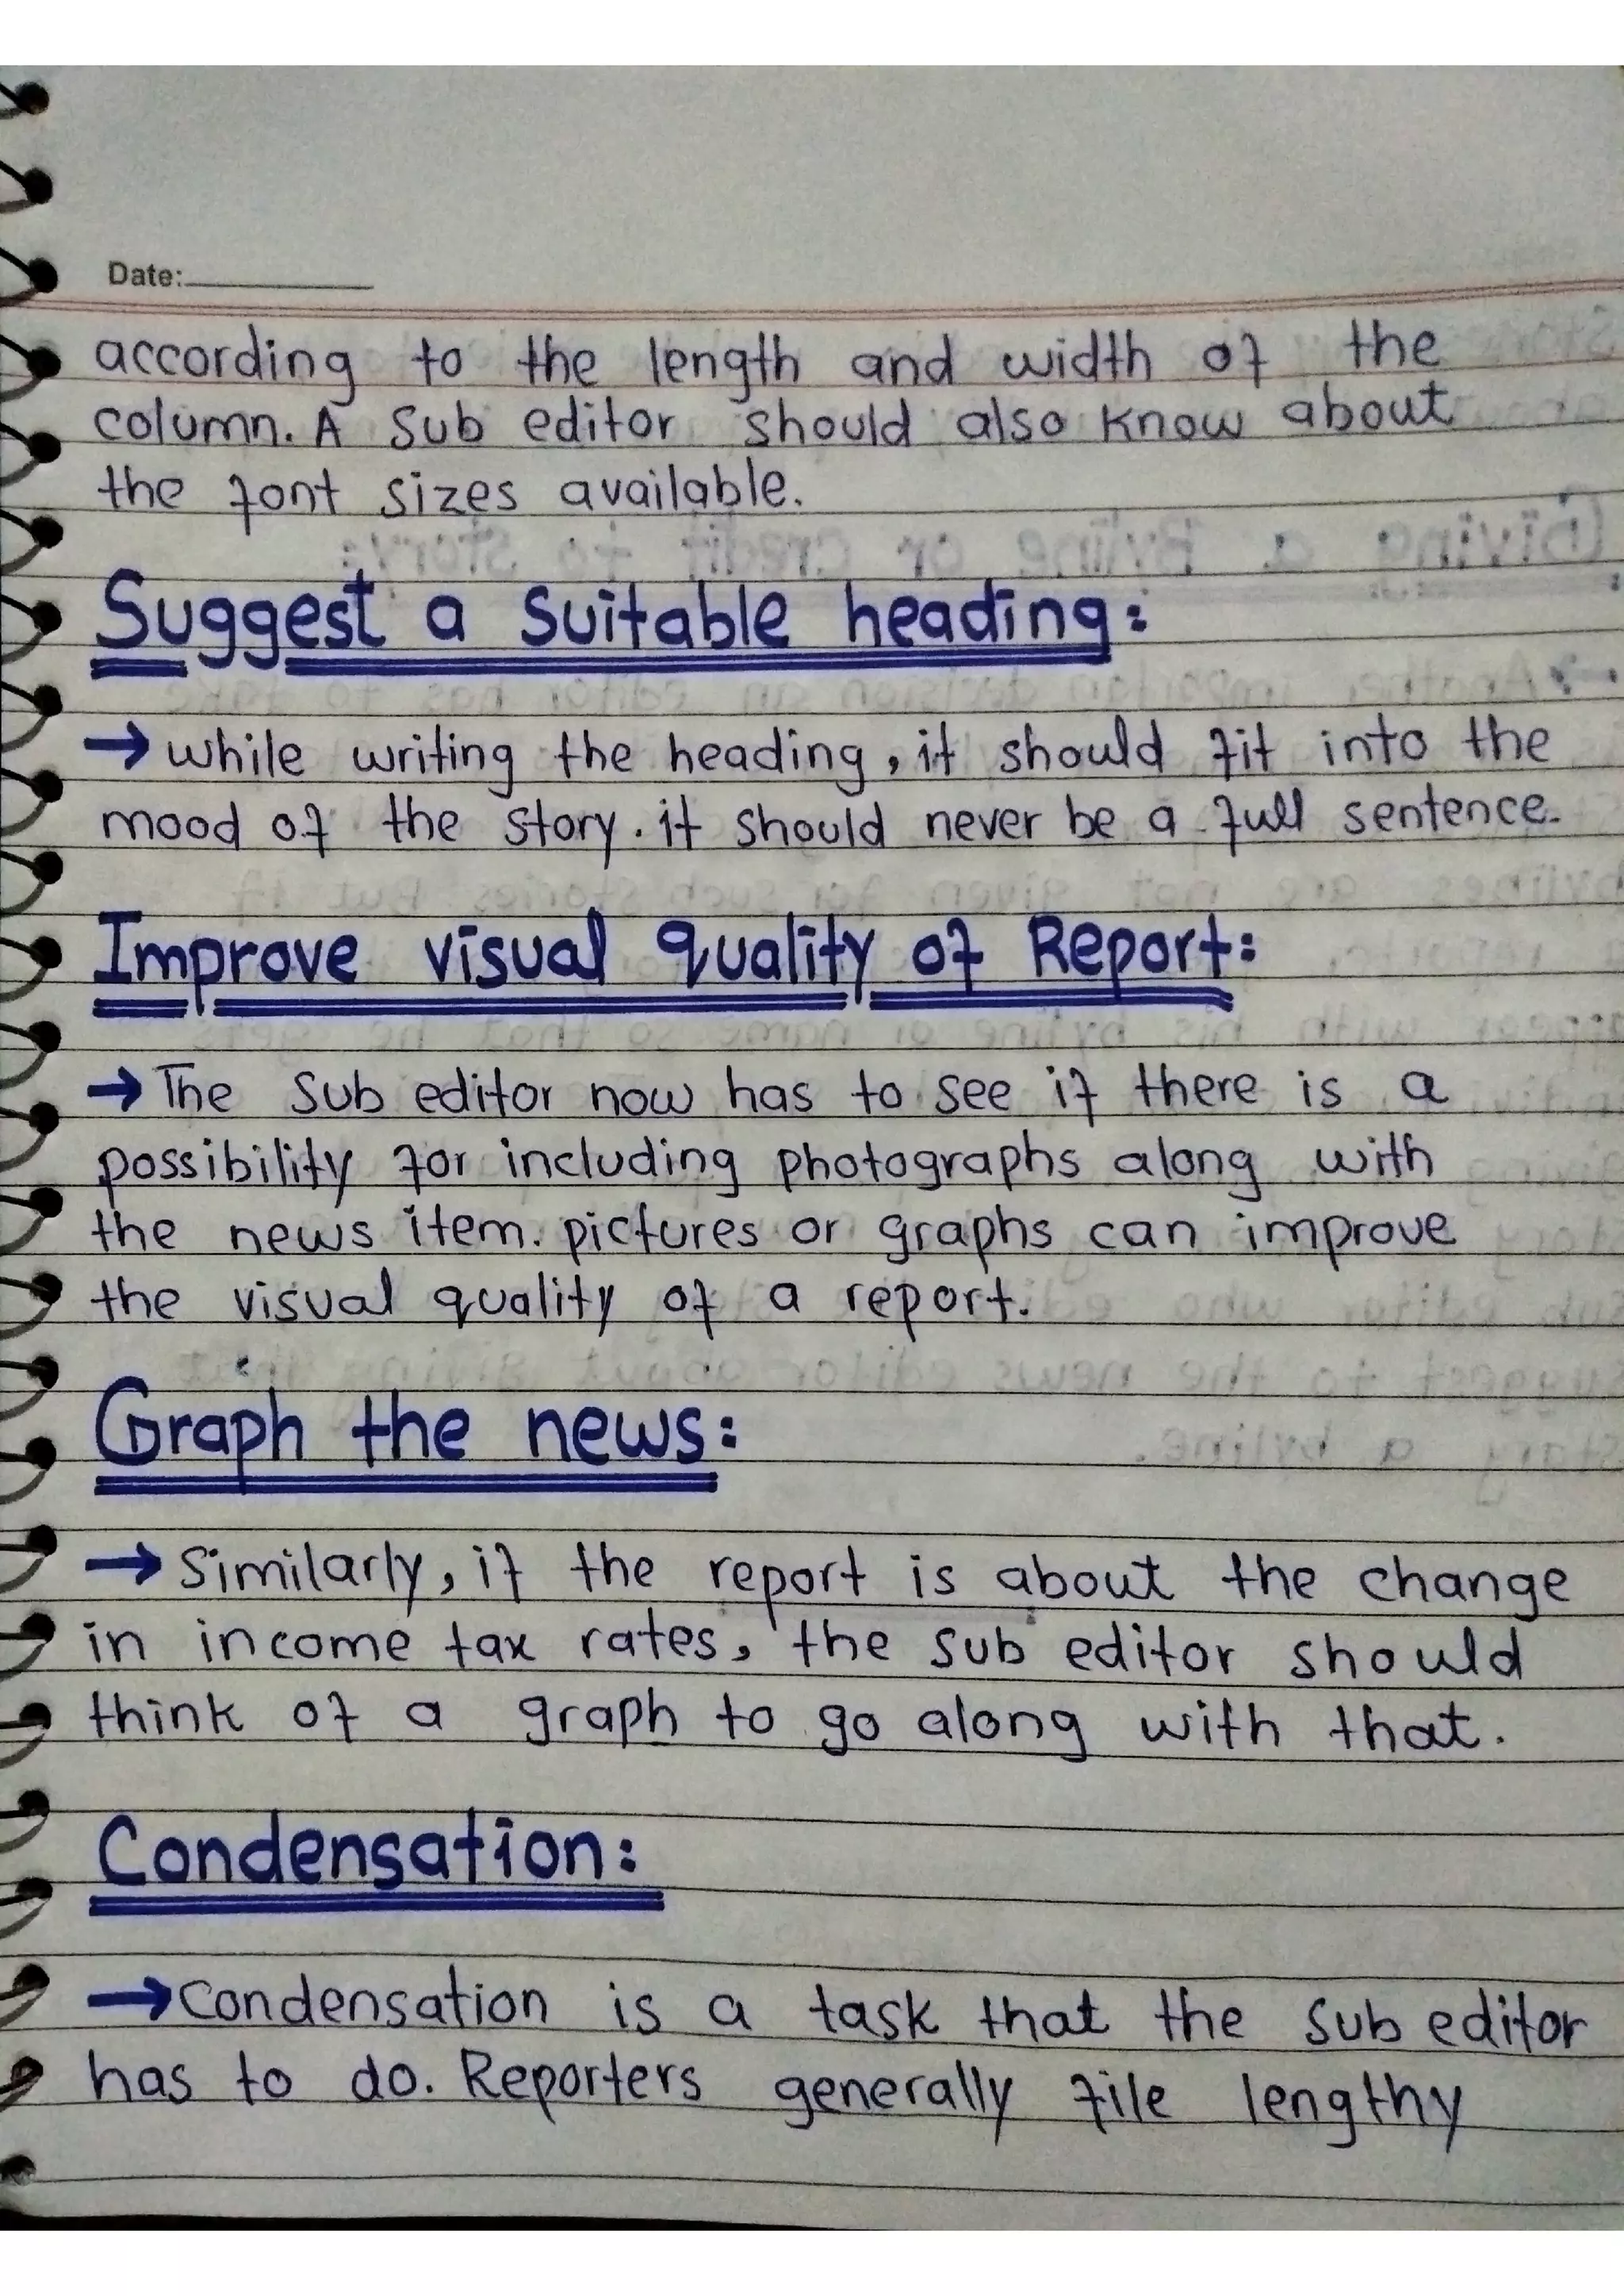 Date:
according to the length and width of the
column. A sub editor should also know about
the font sizes available.
Suggest a suitable heading:
→ while writing the heading, it should fit into the
mood of the story. it should never be a full sentence.
Improve visual quality of Report:
→ The sub editor now has to see if there is a
possibility for including photographs along with
the news item. pictures or graphs can improve
the visual quality of a report.
Graph the news:
→ Similarly, if the report is about the change
in income tax rates, the sub editor should
think of a graph to go along with that.
Condensation:
→ Condensation is a task that the sub editor
has to do. Reporters generally file lengthy